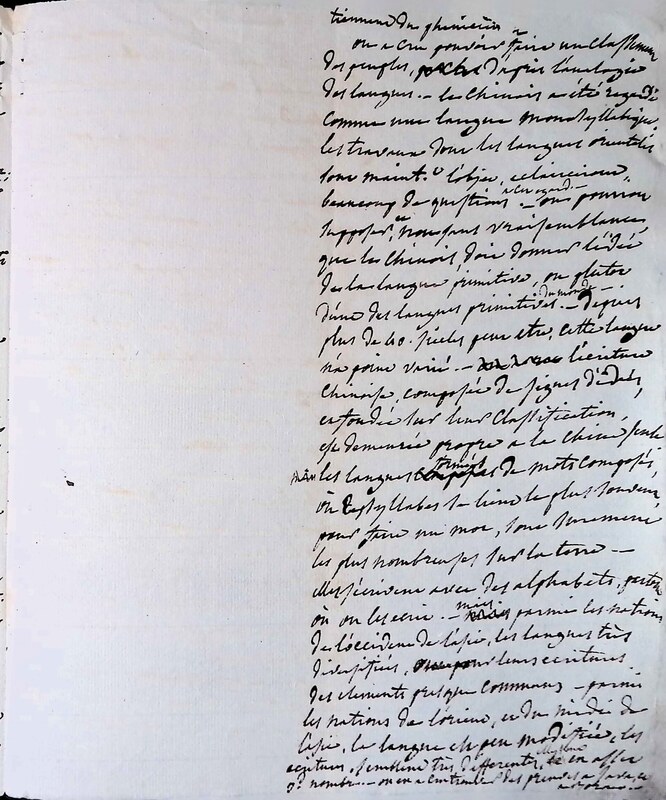 on a cru pouvoir faire un classement
des peuples, d'après l'analogie
des langues. - les Chinois a été regardé
comme une langue monosyllabique
les travaux dont les langues orientales
sont maint.t l'objet, eclairciront
beaucoup de questions - on pourrait
supposer, non sans vraisemblance,
que le Chinois, doit donner l'idée
de la langue primitive, ou plutot
d'une des langues primitives du monde - depuis
plus de 40. siecles peut etre, cette langue
n'a point varié. - l'écriture
Chinoise, composée de signes d'idées,
et fondée sur leur classification,
est demeurée propre a la Chine seule
mais les langues formées de mots composés,
ou les syllabes se lient le plus souvent,
pour faire un mot, sont surement
les plus nombreuses sur la terre -
elles s'écrivent avec des alphabets, partout
où on les ecrit. - mais parmi les nations
de l'occident de l'asie, les langues très
diversifiées, ont pour leurs ecritures
des elements presque communs - parmi
les nations de l'orient, et du midi de
l'asie, la langue est peu modifiée, les
ecritures semblent très differentes, en assez
gd. nombre. - on en a